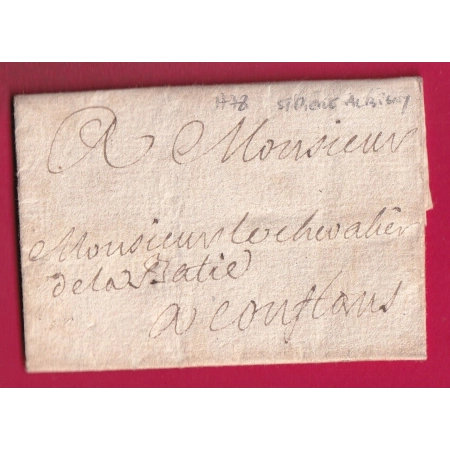 1778 St Pierre Albigny
A Monsieur
Monsieur le chevalier
de la Batie
a conflans